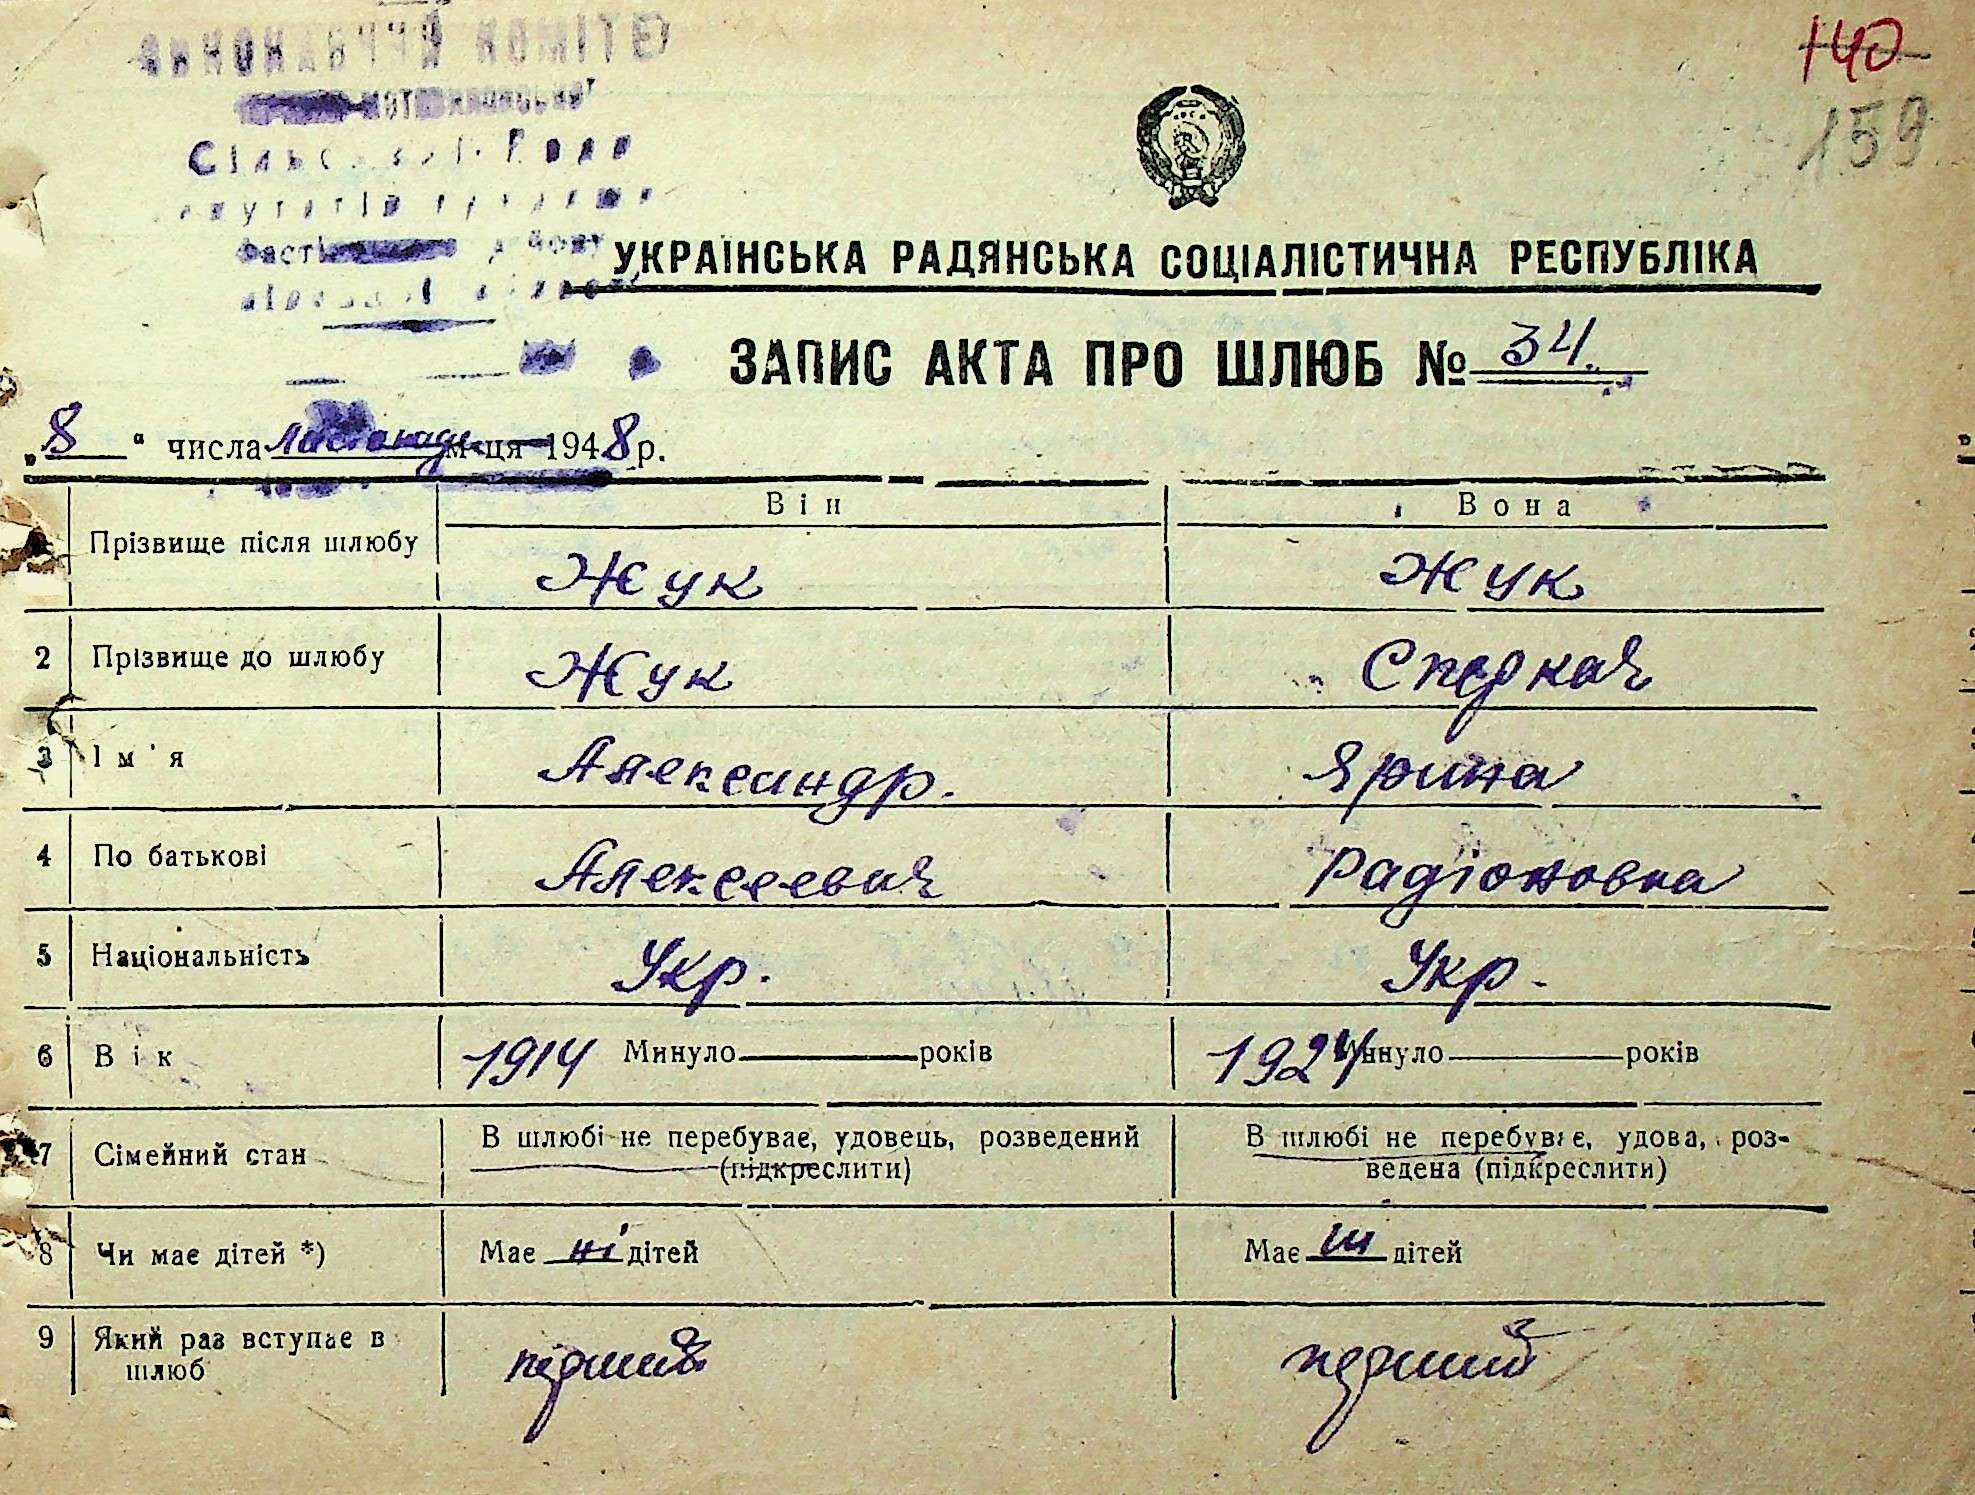 140
159
ВИКОНАВЧИЙ КОМІТЕТ
Сільської Ради
УКРАЇНСЬКА РАДЯНСЬКА СОЦІАЛІСТИЧНА РЕСПУБЛІКА
ЗАПИС АКТА ПРО ШЛЮБ № 34.
„8“ числа Листопада м-ця 1948 р.
Він Вона
Прізвище після шлюбу Жук Жук
2 Прізвище до шлюбу Жук Сперкач
3 Ім'я Александр. Ярина
4 По батькові Алексеевич Радіоновна
5 Національність Укр. Укр.
6 Вік 1914 Минуло років 1924 Минуло років
7 Сімейний стан В шлюбі не перебуває, удовець, розведений (підкреслити) В шлюбі не перебуває, удова, роз-
ведена (підкреслити)
8 Чи має дітей *) Має ні дітей Має ні дітей
9 Який раз вступає в шлюб перший перший